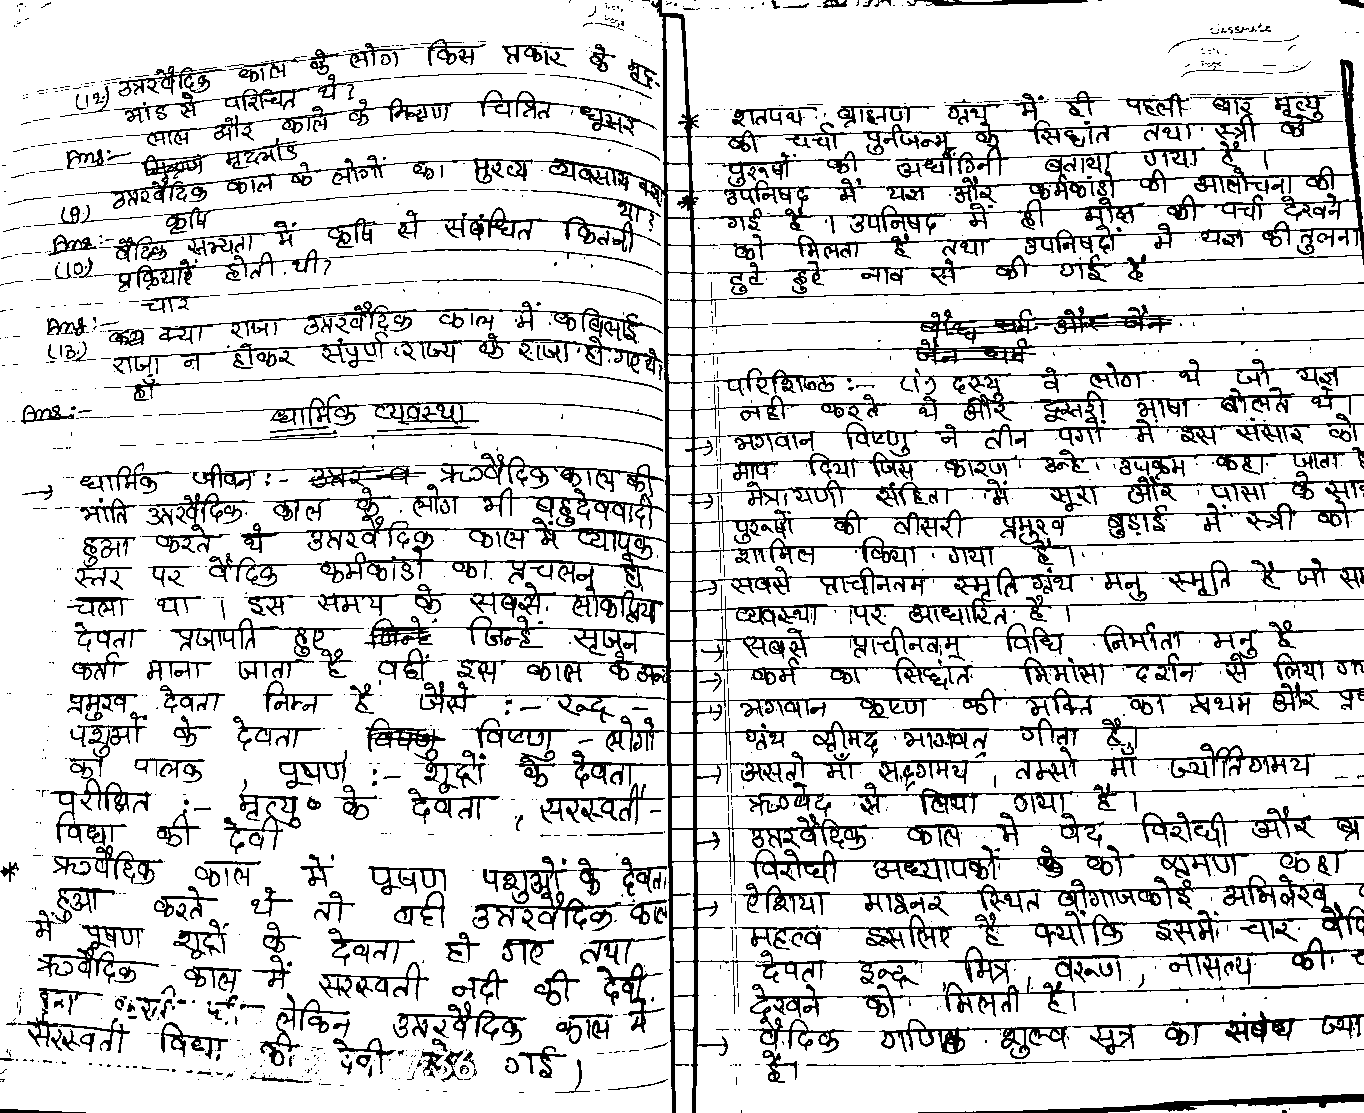 (12) उत्तरवैदिक काल के लोग किस प्रकार के मृद-
भांड से परिचित थे?
Ans:- लाल और काले के मिश्रण चित्रित धूसर
मृदभांड
(9) उत्तरवैदिक काल के लोगों का मुख्य व्यवसाय क्या
था?
Ans:- कृषि
(10) वैदिक सभ्यता में कृषि से संबंधित कितनी
प्रक्रियाएं होती थी?
Ans:- चार
(13) क्या राजा उत्तरवैदिक काल में कबिलाई
राजा न होकर संपूर्ण राज्य के राजा हो गए थे?
Ans:- हाँ
धार्मिक व्यवस्था
→ धार्मिक जीवन:- ऋग्वैदिक काल की
भांति उत्तरवैदिक काल के लोग भी बहुदेववादी
हुआ करते थे उत्तरवैदिक काल में व्यापक
स्तर पर वैदिक कर्मकांडो का प्रचलन हो
चला था। इस समय के सबसे लोकप्रिय
देवता प्रजापति हुए जिन्हें सृजन
कर्ता माना जाता है वहीं इस काल के अन्य
प्रमुख देवता निम्न है जैसे :- रूद्र -
पशुओं के देवता विष्णु - लोगो
का पालक, पूषण :- शूद्रों के देवता
परीक्षित :- मृत्यु के देवता, सरस्वती -
विद्या की देवी
* ऋग्वैदिक काल में पूषण पशुओं के देवता
हुआ करते थे तो वही उत्तरवैदिक काल
में पूषण शूद्रों के देवता हो गए तथा
ऋग्वैदिक काल में सरस्वती नदी की देवी
करती थी लेकिन उत्तरवैदिक काल में
सरस्वती विद्या की देवी गई।
classmate
* शतपथ ब्राह्मण ग्रंथ में ही पहली बार मृत्यु
की चर्चा पुर्नजन्म के सिद्धांत तथा स्त्री को
पुरूषों की अर्धांगिनी बताया गया है।
* उपनिषद में यज्ञ और कर्मकांडो की आलोचना की
गई है। उपनिषद में ही मोक्ष की चर्चा देखने
को मिलता है तथा उपनिषदों में यज्ञ की तुलना
टुटे फुटे नाव से की गई है
बौद्ध धर्म और जैन
जैन धर्म
परिशिष्ठ :- (1) दस्यु वे लोग थे जो यज्ञ
नही करते थे और दूसरी भाषा बोलते थे।
→ भगवान विष्णु ने तीन पगों में इस संसार को
माप दिया जिस कारण उन्हे उपक्रम कहा जाता है
→ मैत्रायणी संहिता में सूरा और पासा के साथ
पुरूषों की तीसरी प्रमुख बुड़ाई में स्त्री को
शामिल किया गया है।
→ सबसे प्राचीनतम स्मृति ग्रंथ मनु स्मृति है जो
व्यवस्था पर आधारित है।
→ सबसे प्राचीनतम् विधि निर्माता मनु है
→ कर्म का सिद्धांत मिमांसा दर्शन से लिया
→ भगवान कृष्ण की भक्ति का प्रथम और
ग्रंथ श्रीमद् भागवत गीता है।
→ असतो माँ सद्गमय, तम्सो माँ ज्योतिगमय
ऋग्वेद से लिया गया है।
→ उत्तरवैदिक काल में वेद विरोधी और
विरोधी अध्यापकों को श्रमण कहा
→ ऐशिया माइनर स्थित बोगाजकोई अभिलेख
महत्व इसलिए है क्योंकि इसमें चार
देवता इन्द्र, मित्र, वरूण, नासत्य की
देखने को मिलती है।
→ वैदिक गणित शुल्व सूत्र का संबंध
है।